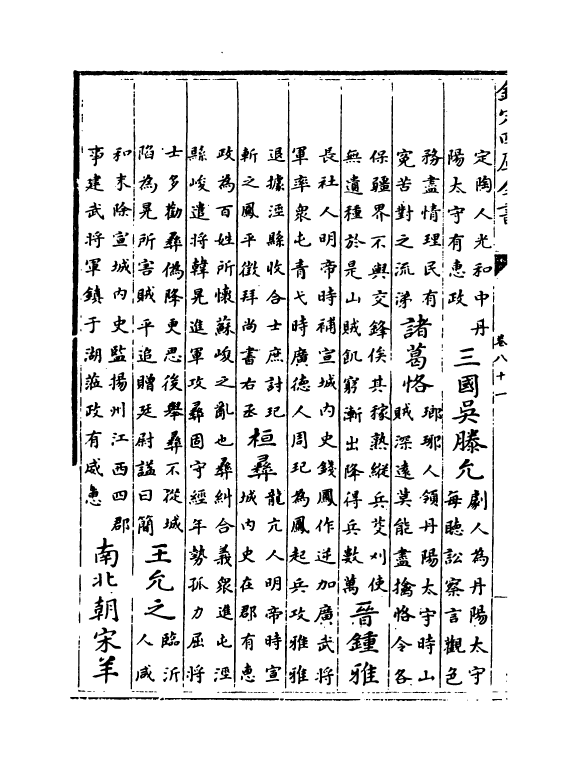 欽定四庫全書
卷八十一
定陶人光和中丹
陽太守有惠政
三國吳滕允
劇人為丹陽太守
每聽訟察言觀色
務盡情理民有
寃苦對之流涕
諸葛恪
瑯琊人領丹陽太守時山
賊深遠莫能盡擒恪令各
保疆界不與交鋒俟其稼熟縱兵芟刈使
無遺種於是山賊飢窮漸出降得兵數萬
晉鍾雅
長社人明帝時補宣城内史錢鳳作逆加廣武將
軍率衆屯青弋時廣德人周玘為鳳起兵攻雅雅
退據涇縣收合士庶討玘
斬之鳳平徵拜尚書右丞
桓彛
龍亢人明帝時宣
城内史在郡有惠
政為百姓所懷蘇峻之亂也彛糾合義衆進屯涇
縣峻遣將韓晃進軍攻彛固守經年勢孤力屈將
士多勸彛偽降更思後舉彛不從城
陷為晃所害賊平追贈廷尉諡曰簡
王允之
臨沂
人咸
和末除宣城内史監揚州江西四郡
事建武將軍鎮于湖蒞政有威惠
南北朝宋羊